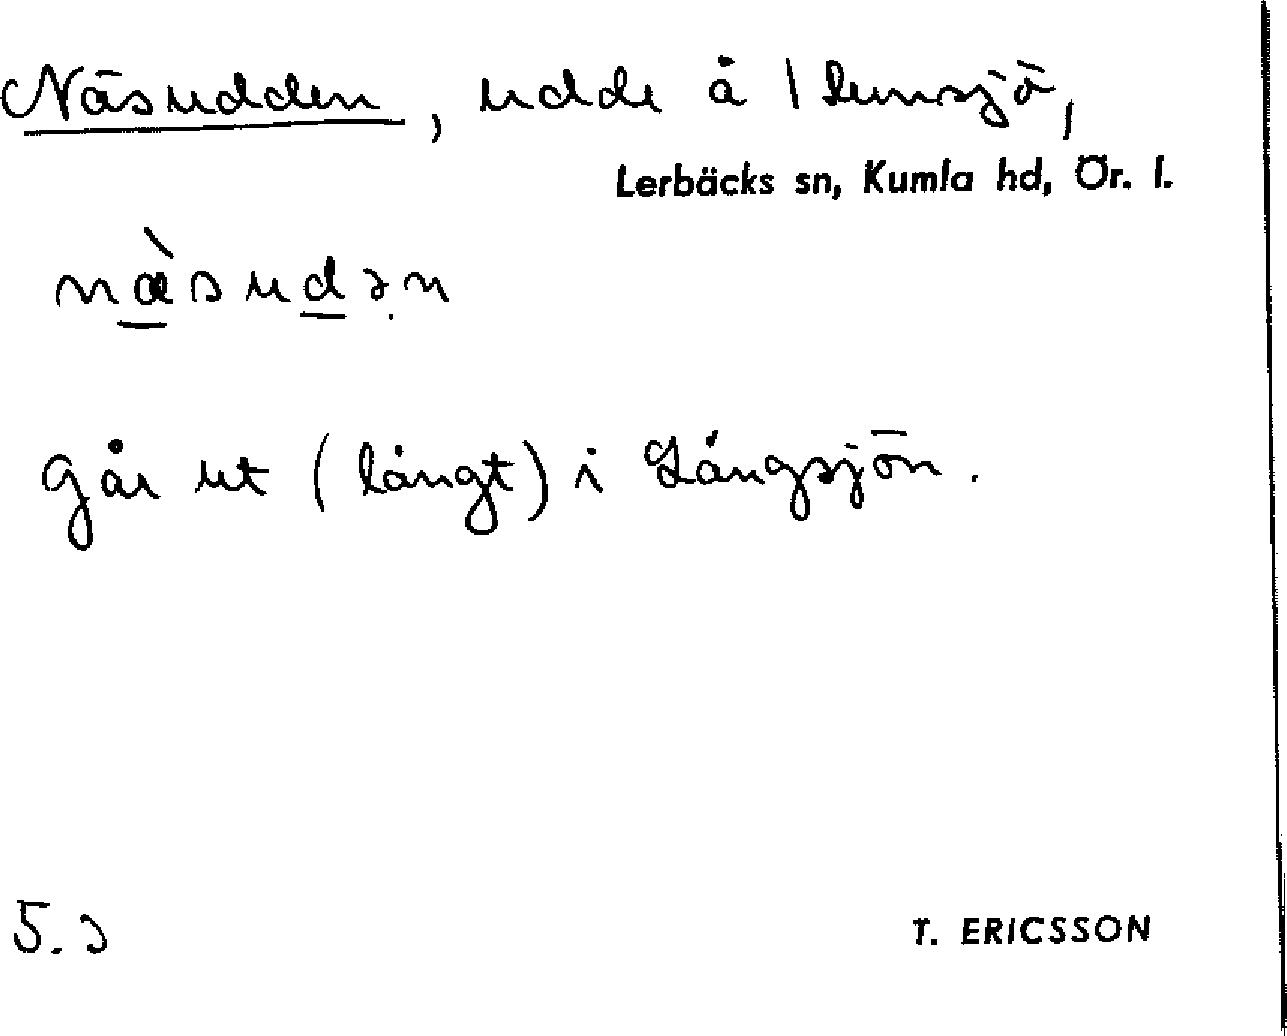 Näsudden, udde å 1
Lerbäcks sn, Kumla hd, Ör. l.
næ̀sudən
går ut (långt) i Långsjön.
5.
T. ERICSSON